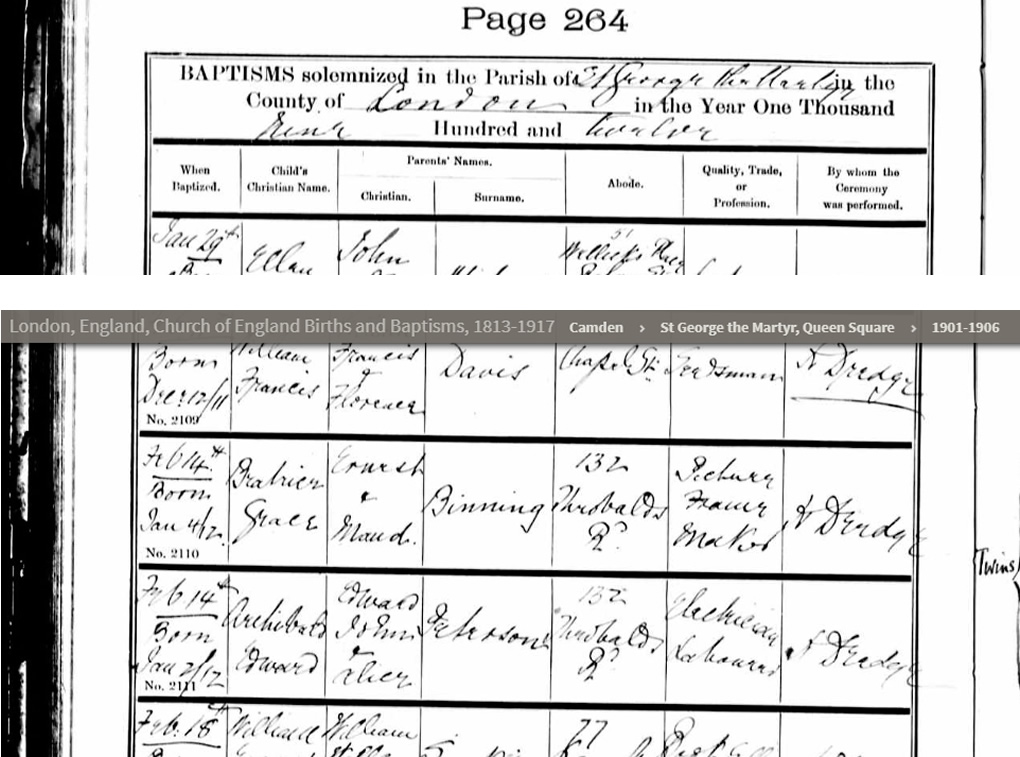 Page 264
BAPTISMS solemnized in the Parish of St George the Martyr in the
County of London in the Year One Thousand
Nine Hundred and Twelve
When Baptized.
Child's Christian Name.
Parents' Names.
Christian.
Surname.
Abode.
Quality, Trade, or Profession.
By whom the Ceremony was performed.
Jan 29th
Ellen
John
51
London, England, Church of England Births and Baptisms, 1813-1917 Camden › St George the Martyr, Queen Square › 1901-1906
Born
Dec 12/11
No. 2109
William
Francis
Francis
&
Florence
Davis
Chapel St
H Dredge
Feb 14th
Born
Jan 4/12
No. 2110
Beatrice
Grace
Ernest
&
Maud.
Binning
132
Theobalds
Rd
Picture
Frame
Maker
H Dredge
Feb 14th
Born
Jan 2/12
No. 2111
Archibald
Edward
Edward
John
&
Alice
Peterson
132
Theobalds
Rd
Electrician
Labourer
H Dredge
Twins
Feb. 18th
William
William
77